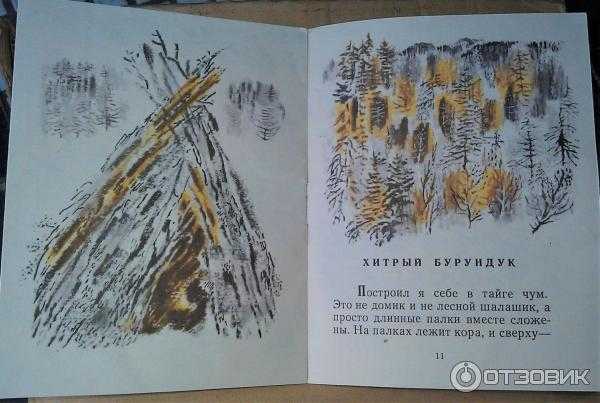 ХИТРЫЙ БУРУНДУК
Построил я себе в тайге чум.
Это не домик и не лесной шалашик, а
просто длинные палки вместе сложе-
ны. На палках лежит кора, и сверху—
11
ОТЗОВИК